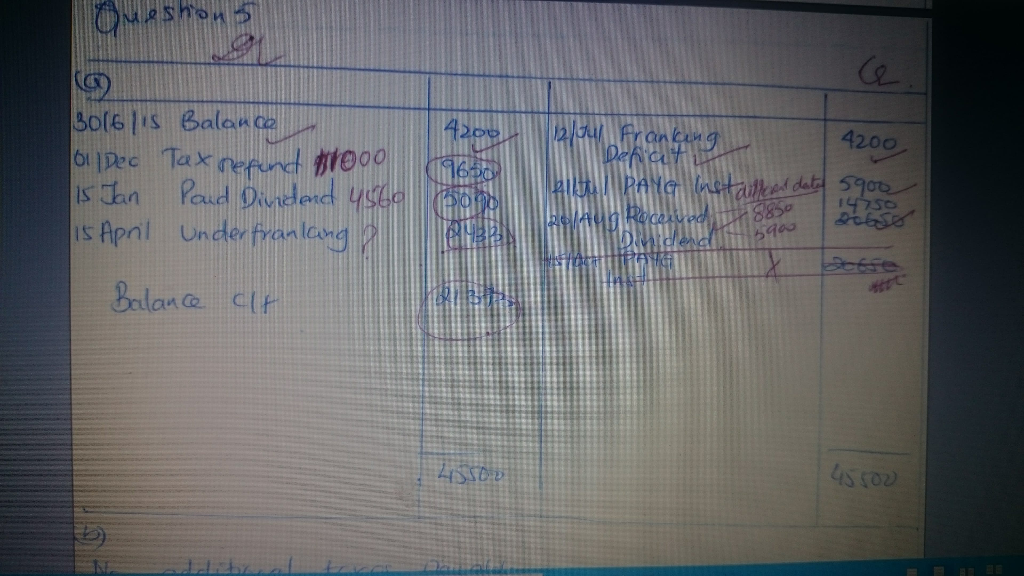 Question 5
Dr
Cr.
(a)
30/6/15 Balance 4200 12/Jul Franking Deficit 4200
01/Dec Tax refund 11000 9650 21/Jul PAYG Inst different date 5900
15 Jan Paid Dividend 4560 5090 20/Aug Received Dividend 8850 5900 14750 20650
15 April Underfranking ? 15/Oct PAYG Inst X 20650
Balance c/f
45500 45500
(b)
No additional taxes